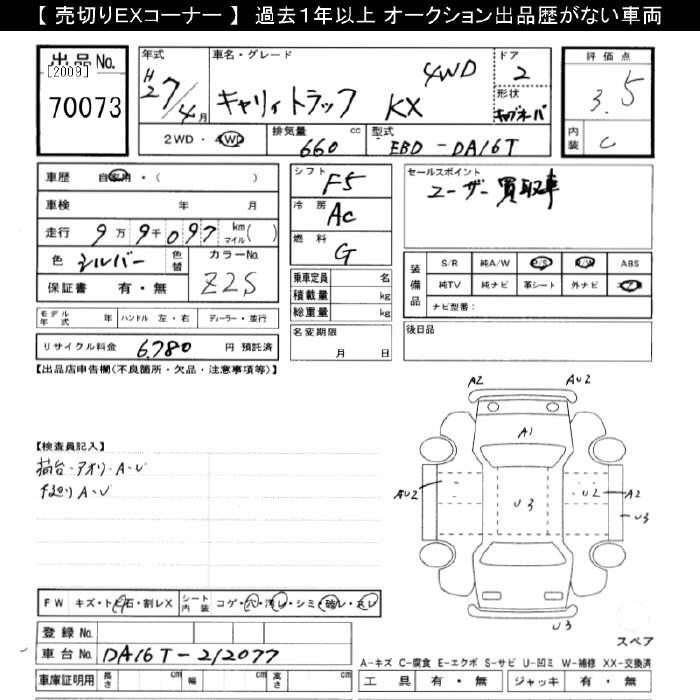 【 売切りEXコーナー 】 過去1年以上 オークション出品歴がない車両
出品 No.
[2009]
70073
年式
H27/4月
車名・グレード
キャリィトラック KX 4WD
ドア
2
形状
キャブオーバ
2WD・4WD
排気量 660 cc
型式 EBD-DA16T
評価点
3.5
内装 C
車歴 自家用・( )
車検 年 月
走行 9万9千097 km マイル( )
色 シルバー 色替
カラーNo. Z2S
保証書 有・無
シフト F5
冷房 AC
燃料 G
セールスポイント
ユーザー買取車
装備品
S/R 純A/W P/S P/W ABS
純TV 純ナビ 革シート 外ナビ
ナビ型番:
乗車定員 名
積載量 kg
総重量 kg
モデル年式 年 ハンドル 左・右 ディーラー・並行
名変期限 月 日
後日品
リサイクル料金 6,780 円 預託済
【出品店申告欄(不良箇所・欠品・注意事項等)】
【検査員記入】
荷台・アオリ・A・U
下廻り A・U
A2 AU2
A1
AU2 U3 U2 A2
U3
U3
スペア
FW キズ・トビ石・割レX シート内装 コゲ・穴・汚レ・シミ・破レ・スレ
登録 No.
車台 No. DA16T-212077
車庫証明用 長さ cm 幅 cm 高さ cm
A-キズ C-腐食 E-エクボ S-サビ U-凹ミ W-補修 XX-交換済
工具 有・無 ジャッキ 有・無